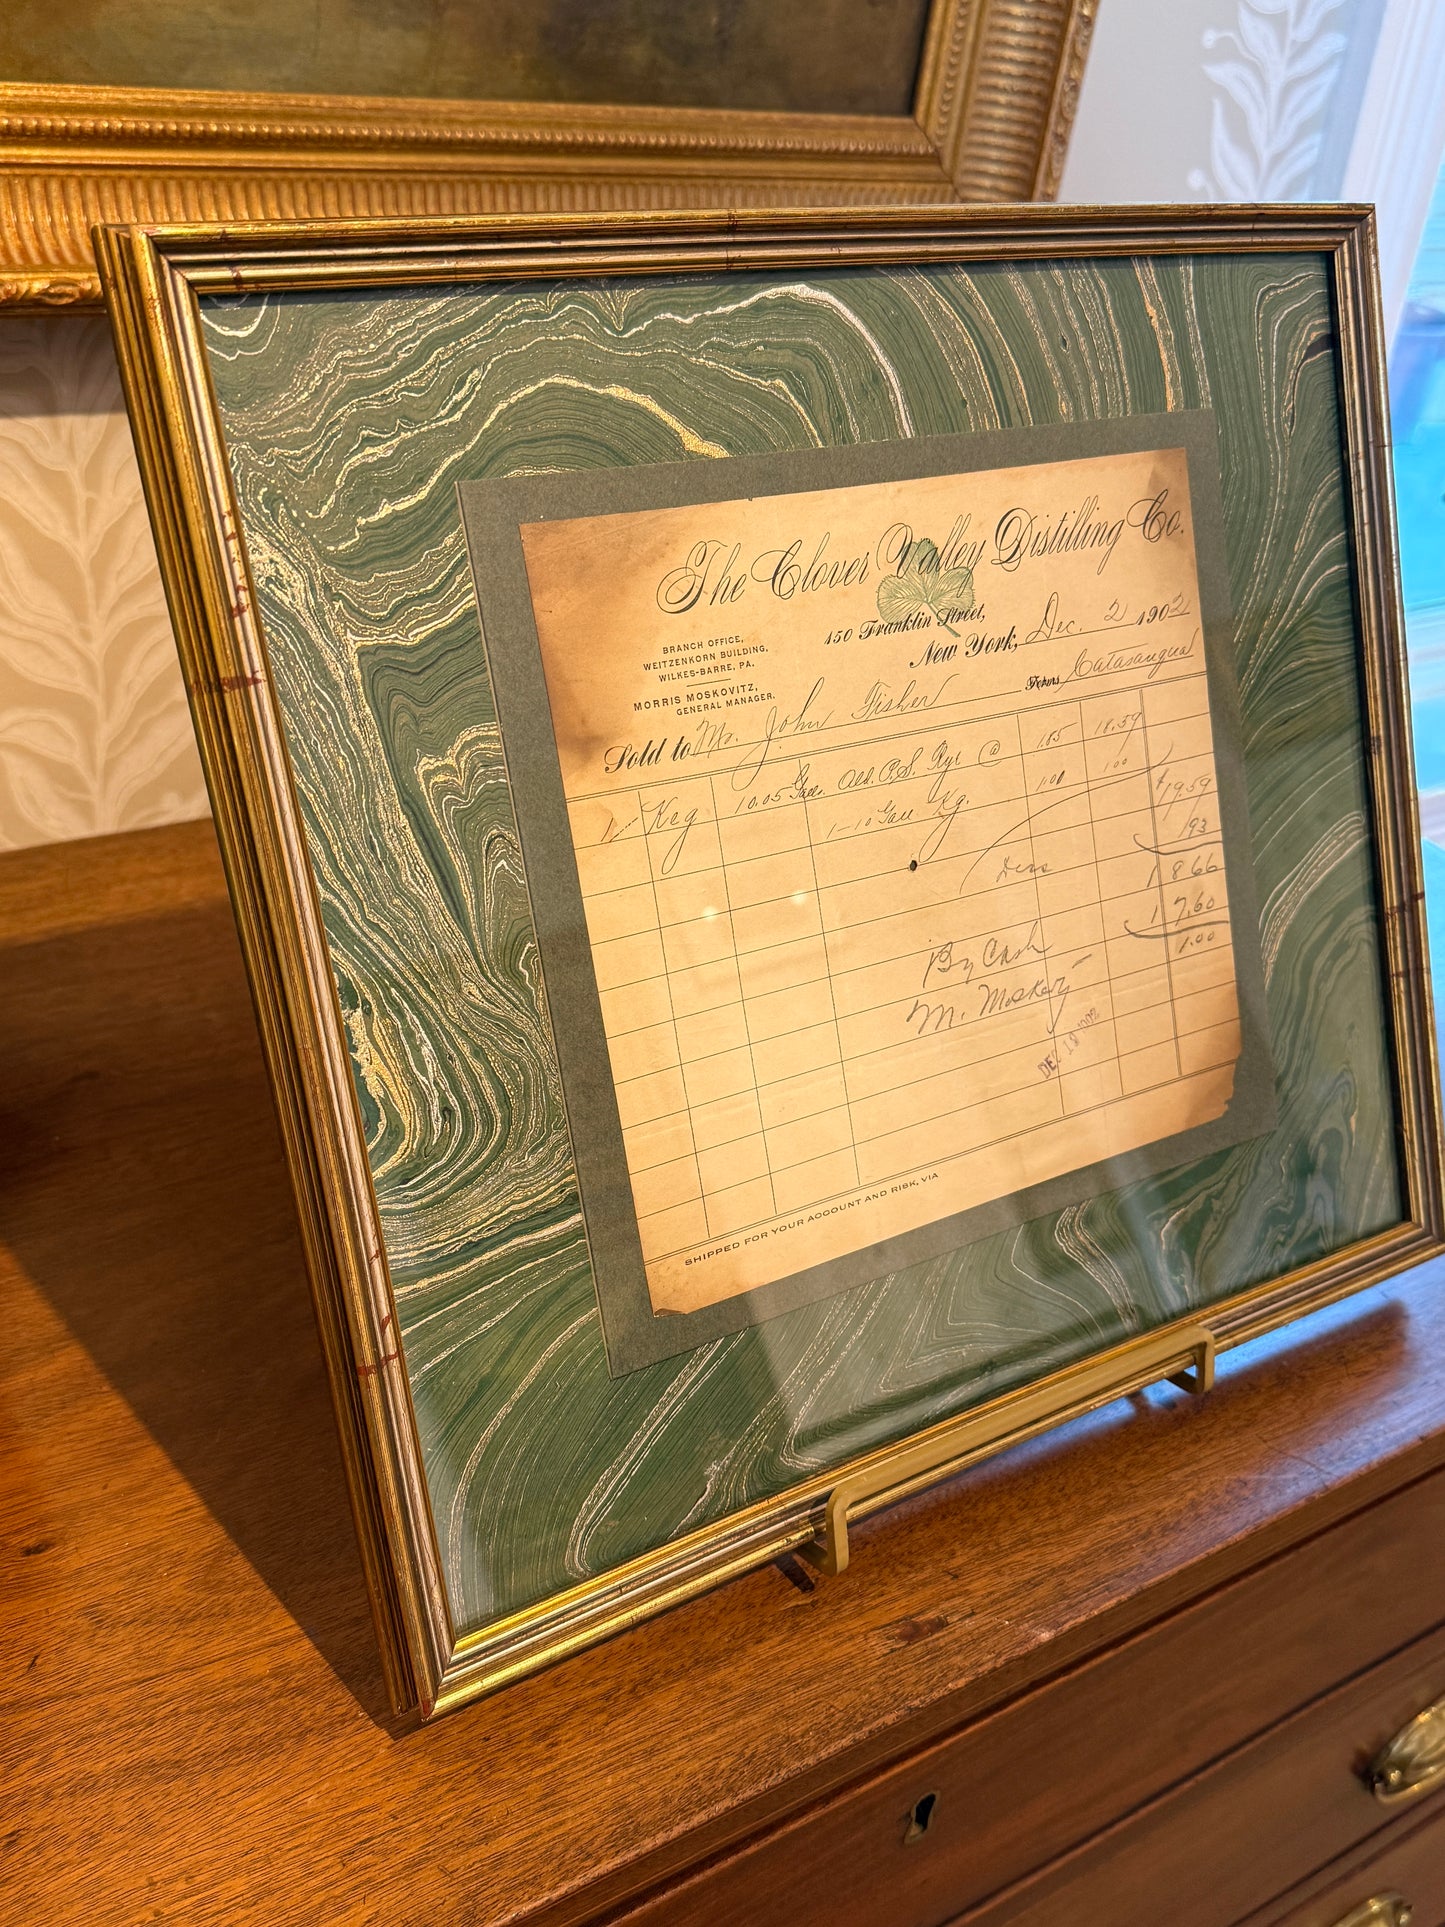 The Clover Valley Distilling Co.
150 Franklin Street,
New York, Dec. 2 1902
BRANCH OFFICE,
WEITZENKORN BUILDING,
WILKES-BARRE, PA.
MORRIS MOSKOVITZ,
GENERAL MANAGER.
Sold to Mr. John Fisher Terms Catasauqua
1 Keg 10.05 Gall. Old. P.S. Rye @ 1.85 18.59
1-10 Gall Kg. 1.00 1.00
$19.59
.93
18.66
17.60
1.00
By Cash
M. Moskovitz
DEC 18 1902
SHIPPED FOR YOUR ACCOUNT AND RISK, VIA